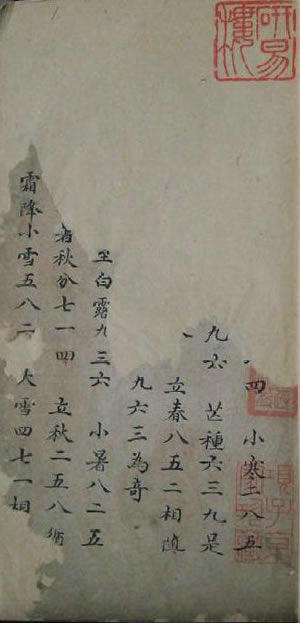 研易樓
四 小寒二八五
九六 芒種六三九是
立春八五二相隨
九六三為奇
至白露九三六 小暑八二五
暑秋分七一四 立秋二五八循
霜降小雪五八二 大雪四七一相
項子京家珍藏